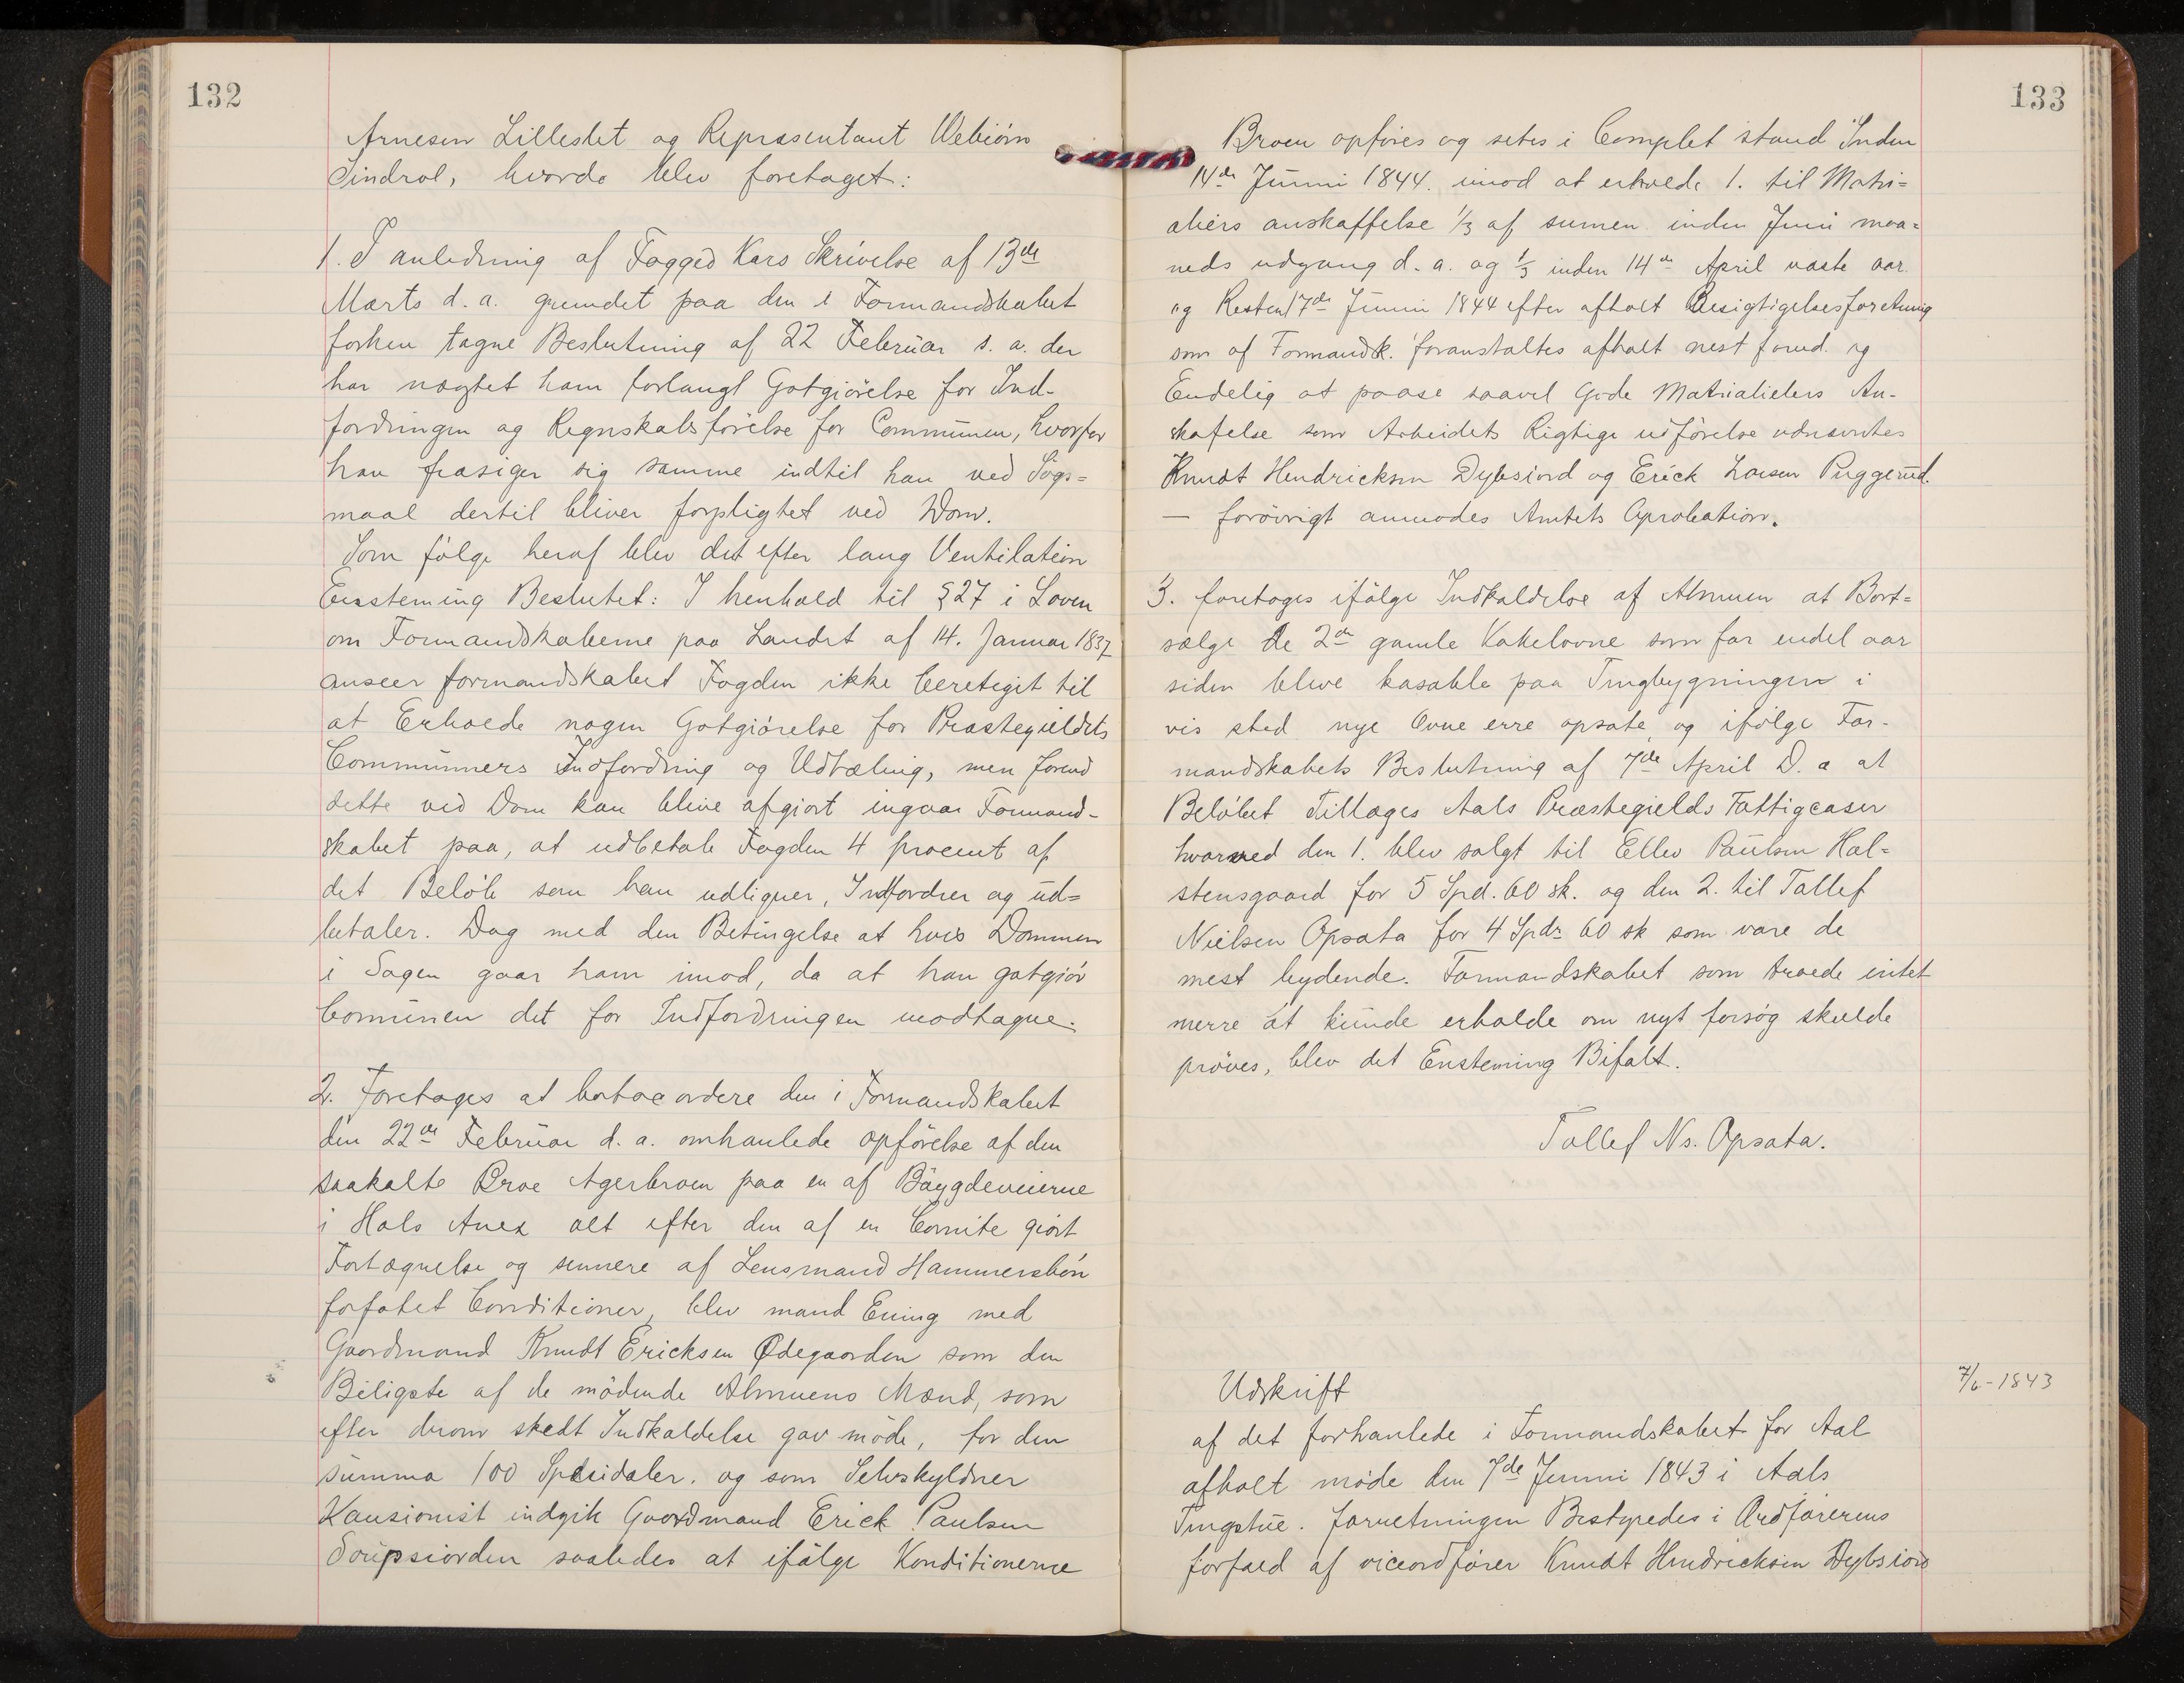 132
Arnesen Lilleslet og Repræsentant Vebiörn
Sindrol, hvorda blev foretaget:
1. I anledning af Fogged Kars Skrivelse af 13de
Marts d. a. grundet paa den i Formandskabet
forhen tagne Beslutning af 22 Februar s. a. der
har nægtet ham forlangt Gotgiörelse for Ind-
fordringen og Regnskabsförelse for Communen, hvorfor
han frasiger sig samme indtil han ved Sögs=
maal dertil bliver forpligtet ved Dom.
Som fölge heraf blev det efter lang Ventilation
Eensteming Beslutet: I henhold til §27 i Loven
om Formandskaberne paa Landet af 14. Januar 1837
anseer formandskabet Fogden ikke beretiget til
at Erholde nogen Gotgiörelse for Præstegieldets
Communners Indfordring og Udtæling, men forend
dette ved Dom kan blive afgjort ingaar Formand-
skabet paa, at udbetale Fogden 4 procent af
det Belöb som han udligner, Indfordrer og ud=
betaler. Dog med den Betingelse at hvis Dommen
i Sagen gaar ham imod, da at han gotgiör
Communen det for Indfordringen modtagne.
2. Foretages at bortacordere den i Formandskabet
den 22de Februar d. a. omhanlede opförelse af den
saakalte Broe Agerbroen paa en af Böygdeveierne
i Hols Anex alt efter den af en Comite giört
Fortegnelse og sennere af Lensmand Hammersbön
forfatet Conditioner, blev mand Ening med
Gaardmand Knudt Ericksen Ødegaarden som den
Biligste af de mödende Almuens Mænd, som
efter derom skedt Indkaldelse gav möde, for den
Summa 100 Spesidaler. og som Selvskyldner
Kausionist indgik Gaardmand Erick Paulsen
Soupsiorden saaledes at ifölge Konditionerne
133
Broen opföres og setes i Complet stand Inden
14de Junni 1844. imod at erholde 1. til Matri=
aliers anskaffelse 1/3 af sumen inden Juni maa=
neds udgang d. a. og 1/3 inden 14de April næste aar
og Resten 17de Junni 1844 efter afholt Besigtigelsesforetning
som af Formandsk. foranstaltes afholt nest forud. og
Endelig at paase saavel Gode Matrialielers An-
skafelse som Arbeidets Rigtige udförelse udnævntes
Knudt Hendricksen Dybsiord og Erick Larsen Puggerud.
— foröwrigt anmodes Amtets Aprobation.
3. foretoges ifölge Indkaldelse af Almuen at Bort=
sælge de 2de gamle Kakelovne som for endel aar
siden bleve kasable paa Tingbygningen i
vis sted nye Ovne erre opsate, og ifölge For-
mandskabets Beslutning af 7de April D. a at
Belöbet Tillæges Aals Præstegields Fattigcaser
hvorved den 1. blev solgt til Ellev Paulsen Hal=
stensgaard for 5 Spd. 60 sk. og den 2. til Tallef
Nielsen Opsata for 4 Spdr 60 sk som vare de
mest bydende. Formandskabet som troede intet
merre at kunde erholde om nyt forsög skulde
pröves, blev det Ensteming Bifalt.
Tollef Ns. Opsata.
7/6-1843
Udskrift
af det forhanlede i Formandskabet for Aal
afholt möde den 7de Junni 1843 i Aals
Tingstue. foruetningen Bestyredes i Ordförerens
forfald af viceordförer Knudt Hendricksen Dybsiord